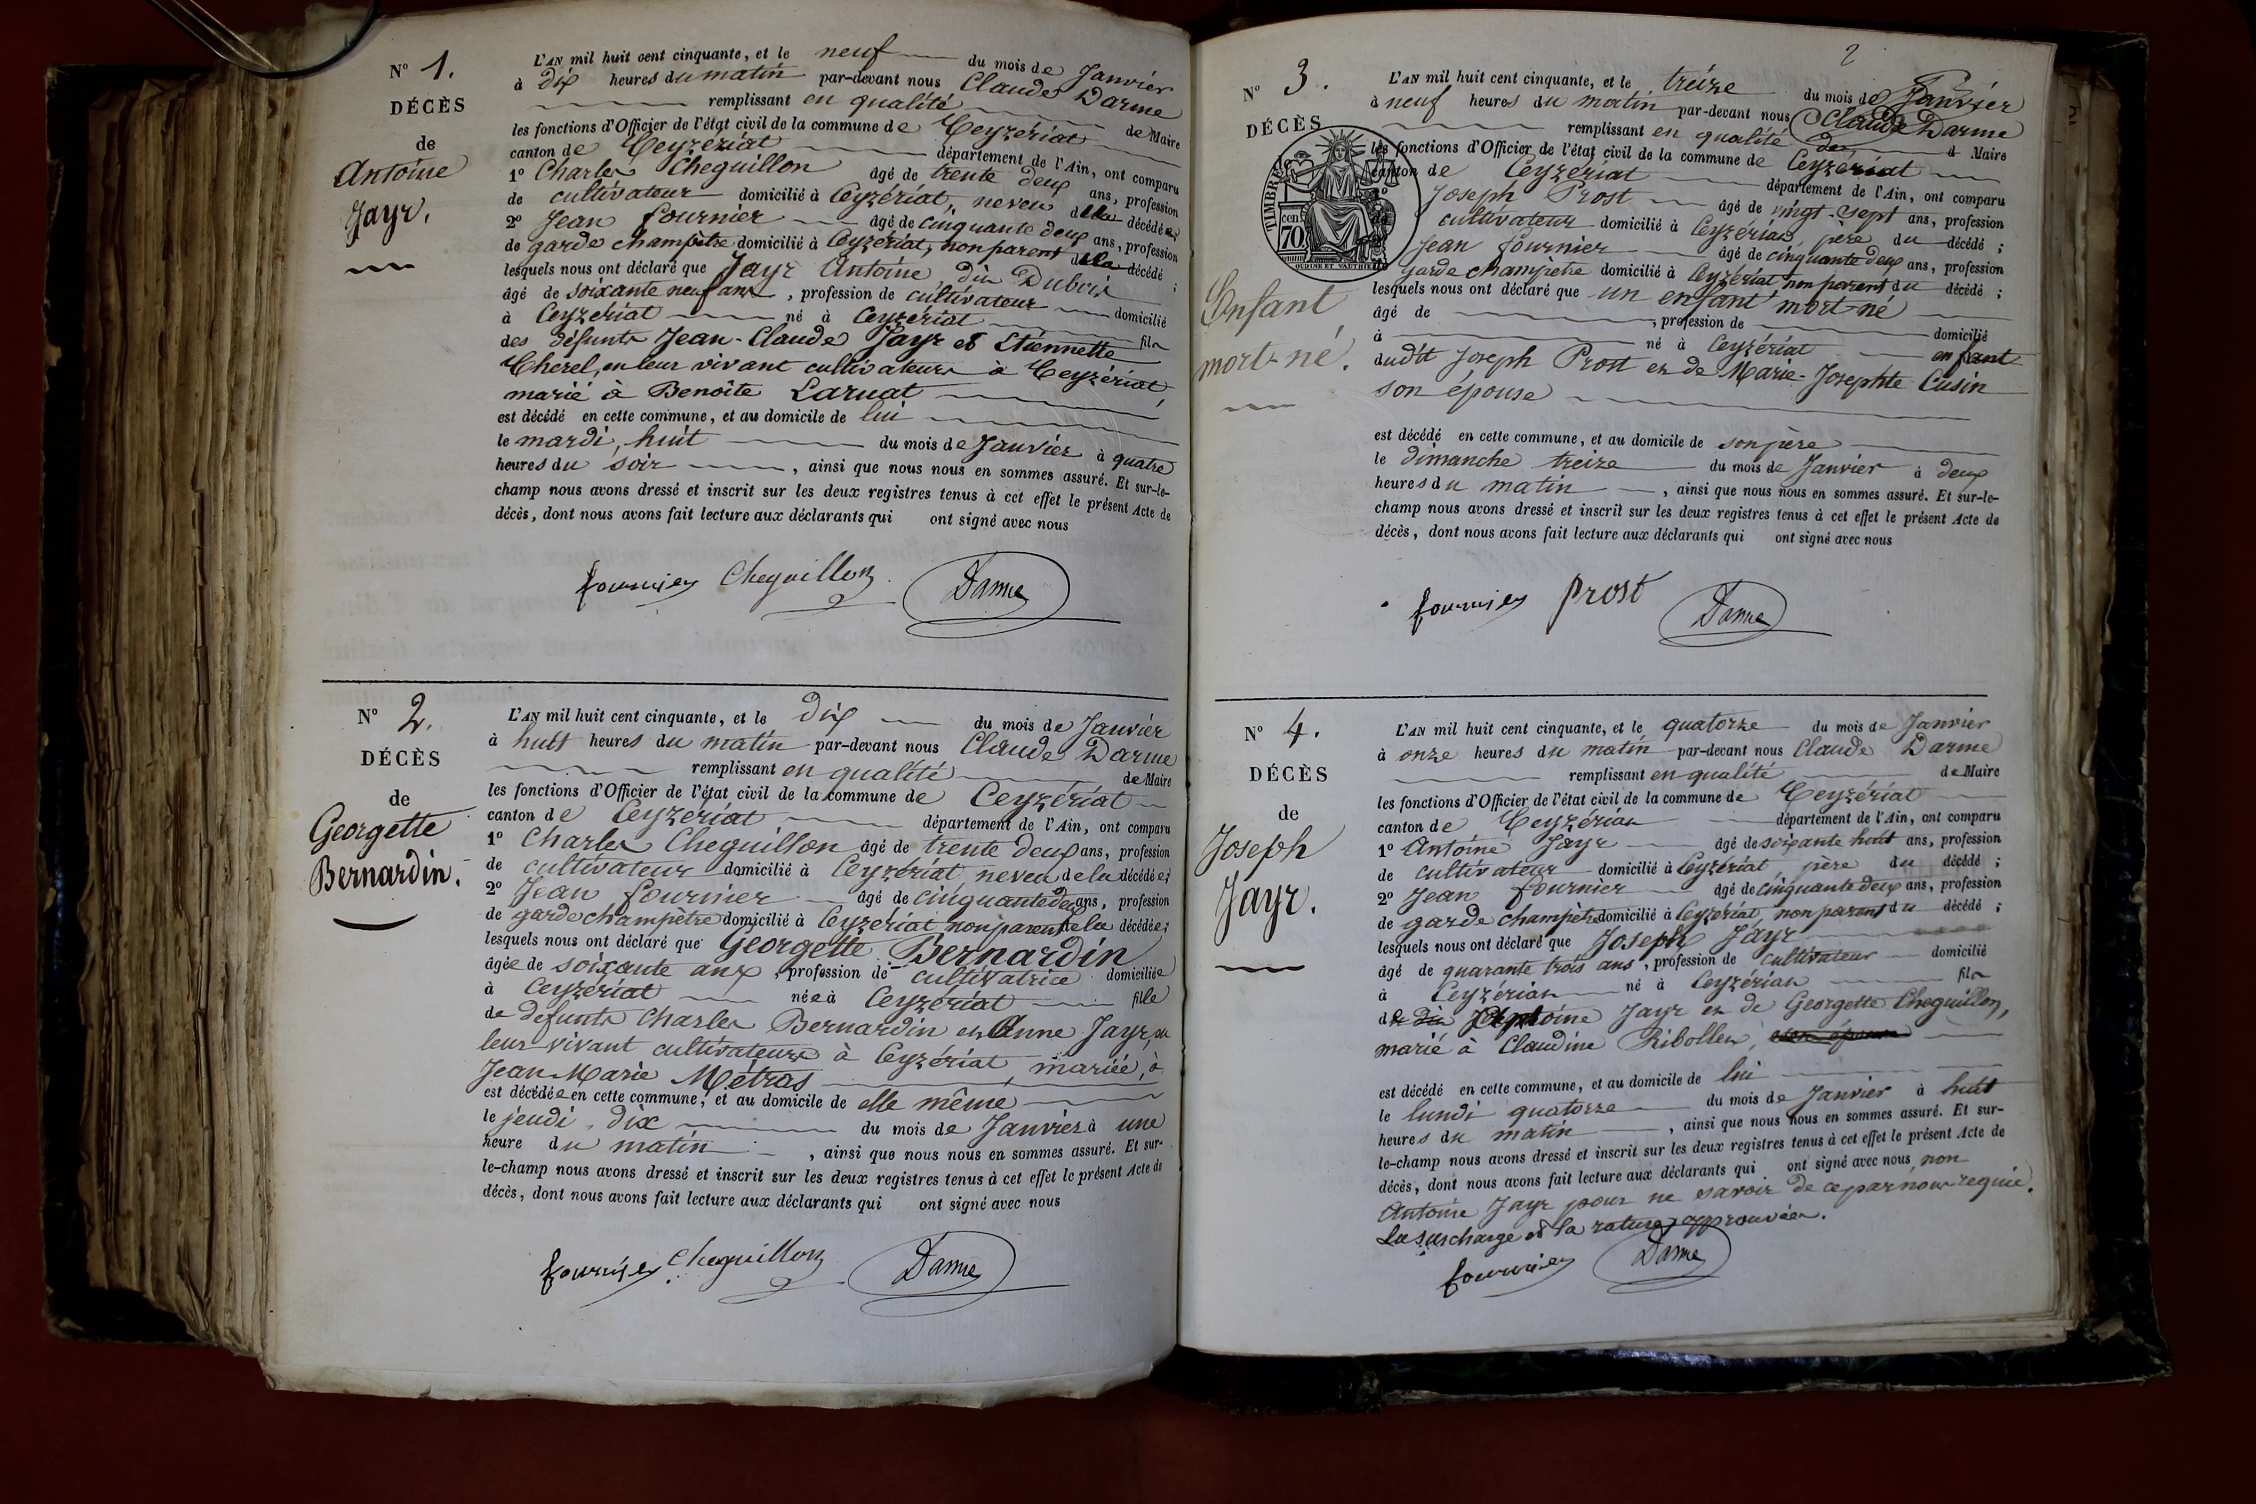 Nº 1.
DÉCÈS
de
Antoine
Jayr.
L'AN mil huit cent cinquante, et le neuf du mois de Janvier
à dix heures du matin par-devant nous Claude Darme
remplissant en qualité de Maire
les fonctions d'Officier de l'état civil de la commune de Ceyzériat
canton de Ceyzériat département de l'Ain, ont comparu
1º Charles Cheguillon âgé de trente deux ans, profession
de cultivateur domicilié à Ceyzériat, neveu du décédé
2º Jean fournier âgé de cinquante deux ans, profession
de garde champêtre domicilié à Ceyzériat, non parent du décédé ;
lesquels nous ont déclaré que Jayr Antoine dit Dubois
âgé de soixante neuf ans, profession de cultivateur domicilié
à Ceyzériat né à Ceyzériat fils
des défunts Jean-Claude Jayr et Etiennette
Cherel, en leur vivant cultivateurs à Ceyzériat,
marié à Benoîte Laruat
est décédé en cette commune, et au domicile de lui
le mardi, huit du mois de Janvier à quatre
heures du soir, ainsi que nous nous en sommes assuré. Et sur-le-
champ nous avons dressé et inscrit sur les deux registres tenus à cet effet le présent Acte de
décès, dont nous avons fait lecture aux déclarants qui ont signé avec nous
fournier Cheguillon Darme
Nº 2.
DÉCÈS
de
Georgette
Bernardin.
L'AN mil huit cent cinquante, et le dix du mois de Janvier
à huit heures du matin par-devant nous Claude Darme
remplissant en qualité de Maire
les fonctions d'Officier de l'état civil de la commune de Ceyzériat
canton de Ceyzériat département de l'Ain, ont comparu
1º Charles Cheguillon âgé de trente deux ans, profession
de cultivateur domicilié à Ceyzériat neveu de la décédée;
2º Jean fournier âgé de cinquante deux ans, profession
de garde champêtre domicilié à Ceyzériat non parent de la décédée;
lesquels nous ont déclaré que Georgette Bernardin
âgée de soixante ans, profession de cultivatrice domiciliée
à Ceyzériat née à Ceyzériat fille
de défunts Charles Bernardin et Anne Jayr, en
leur vivant cultivateurs à Ceyzériat, mariée, à
Jean-Marie Métras
est décédée en cette commune, et au domicile de elle même
le jeudi, dix du mois de Janvier à une
heure du matin, ainsi que nous nous en sommes assuré. Et sur-
le-champ nous avons dressé et inscrit sur les deux registres tenus à cet effet le présent Acte de
décès, dont nous avons fait lecture aux déclarants qui ont signé avec nous
fournier Cheguillon Darme
2
Nº 3.
DÉCÈS
TIMBRE
cen
70
OUDINE ET VAUTHIER
Enfant
mort-né.
L'AN mil huit cent cinquante, et le treize du mois de Janvier
à neuf heures du matin par-devant nous Claude Darme
remplissant en qualité de d Maire
les fonctions d'Officier de l'état civil de la commune de Ceyzériat
canton de Ceyzériat département de l'Ain, ont comparu
Joseph Prost âgé de vingt-sept ans, profession
cultivateur domicilié à Ceyzériat père du décédé ;
Jean fournier âgé de cinquante deux ans, profession
garde champêtre domicilié à Ceyzériat non parent du décédé ;
lesquels nous ont déclaré que un enfant mort-né
âgé de , profession de
à né à Ceyzériat domicilié
enfant
dudit Joseph Prost et de Marie-Josephte Cusin
son épouse
est décédé en cette commune, et au domicile de son père
le dimanche treize du mois de Janvier à deux
heures du matin, ainsi que nous nous en sommes assuré. Et sur-le-
champ nous avons dressé et inscrit sur les deux registres tenus à cet effet le présent Acte de
décès, dont nous avons fait lecture aux déclarants qui ont signé avec nous
fournier prost Darme
Nº 4.
DÉCÈS
de
Joseph
Jayr.
L'AN mil huit cent cinquante, et le quatorze du mois de Janvier
à onze heures du matin par-devant nous Claude Darme
remplissant en qualité de Maire
les fonctions d'Officier de l'état civil de la commune de Ceyzériat
canton de Ceyzériat département de l'Ain, ont comparu
1º Antoine Jayr âgé de soixante huit ans, profession
de cultivateur domicilié à Ceyzériat, père du décédé ;
2º Jean fournier âgé de cinquante deux ans, profession
de garde champêtre domicilié à Ceyzériat, non parent du décédé ;
lesquels nous ont déclaré que Joseph Jayr
âgé de quarante trois ans, profession de cultivateur domicilié
à Ceyzériat né à Ceyzériat fils
d'Antoine Jayr et de Georgette Cheguillon,
marié à Claudine Ribollet,
est décédé en cette commune, et au domicile de lui
le lundi quatorze du mois de Janvier à huit
heures du matin, ainsi que nous nous en sommes assuré. Et sur-
le-champ nous avons dressé et inscrit sur les deux registres tenus à cet effet le présent Acte de
décès, dont nous avons fait lecture aux déclarants qui ont signé avec nous, non
Antoine Jayr pour ne savoir de ce par nous requis.
La surcharge et la rature approuvées.
fournier Darme